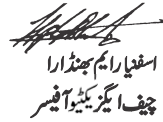 اسفنیار ایم بھنڈارا
چیف ایگزیکٹو آفیسر